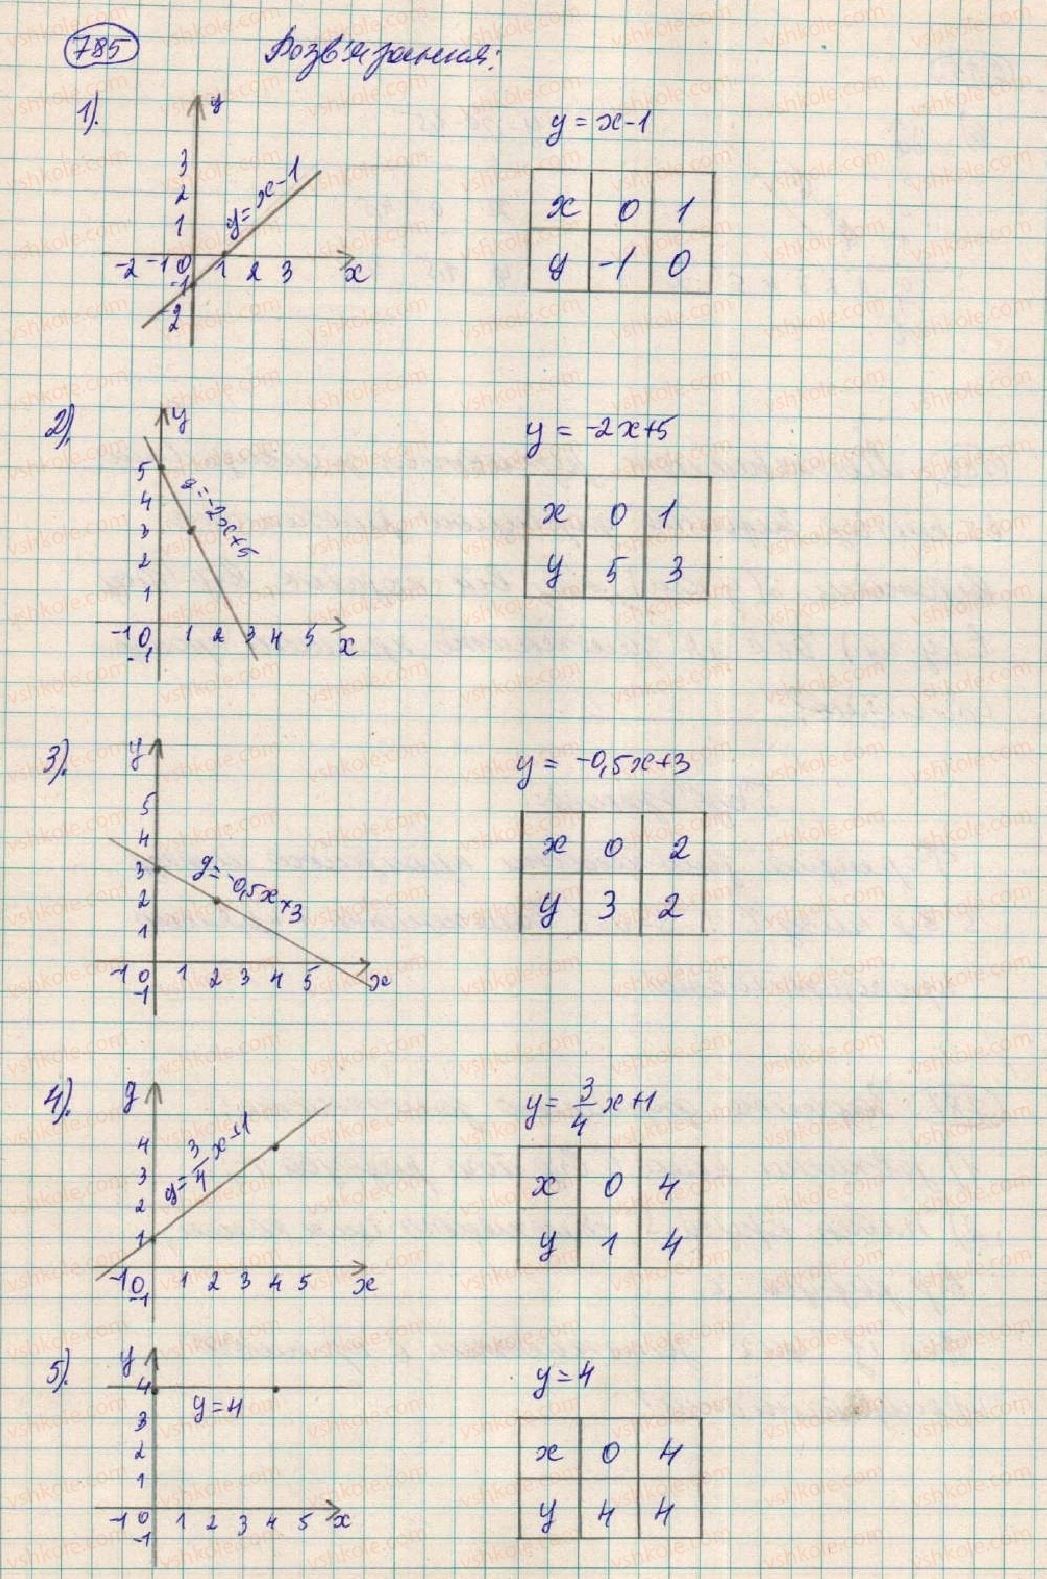 785 Розв'язання:
1).
y
3
2
1
-2 -1 0 1 2 3 x
-1
2
y = x-1
y = x-1
x 0 1
y -1 0
2).
y
5
4
3
2
1
-1 0 1 2 3 4 5 x
-1
y = -2x+5
y = -2x+5
x 0 1
y 5 3
3).
y
5
4
3
2
1
-1 0 1 2 3 4 5 x
-1
y = -0,5x+3
y = -0,5x+3
x 0 2
y 3 2
4).
y
4
3
2
1
-1 0 1 2 3 4 5 x
-1
y = 3/4 x+1
y = 3/4 x+1
x 0 4
y 1 4
5).
y
4
3
2
1
-1 0 1 2 3 4 5 x
-1
y = 4
y = 4
x 0 4
y 4 4
vshkole.com